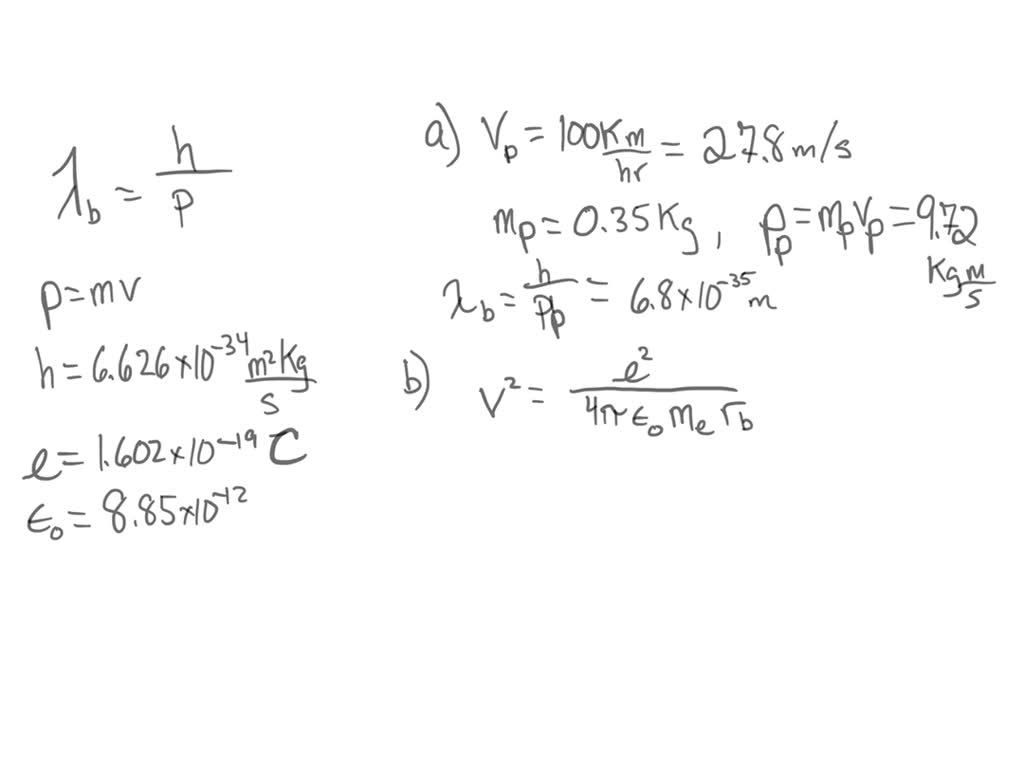 λ_b = h/p
p = mv
h = 6.626 × 10^-34 m²Kg/s
e = 1.602 × 10^-19 C
ε₀ = 8.85 × 10^-12
a) V_p = 100 Km/hr = 27.8 m/s
m_p = 0.35 Kg, p_p = m_p v_p = 9.72 Kg m/s
λ_b = h/p_p = 6.8 × 10^-35 m
b) v² = e²/(4π ε₀ m_e r_b)